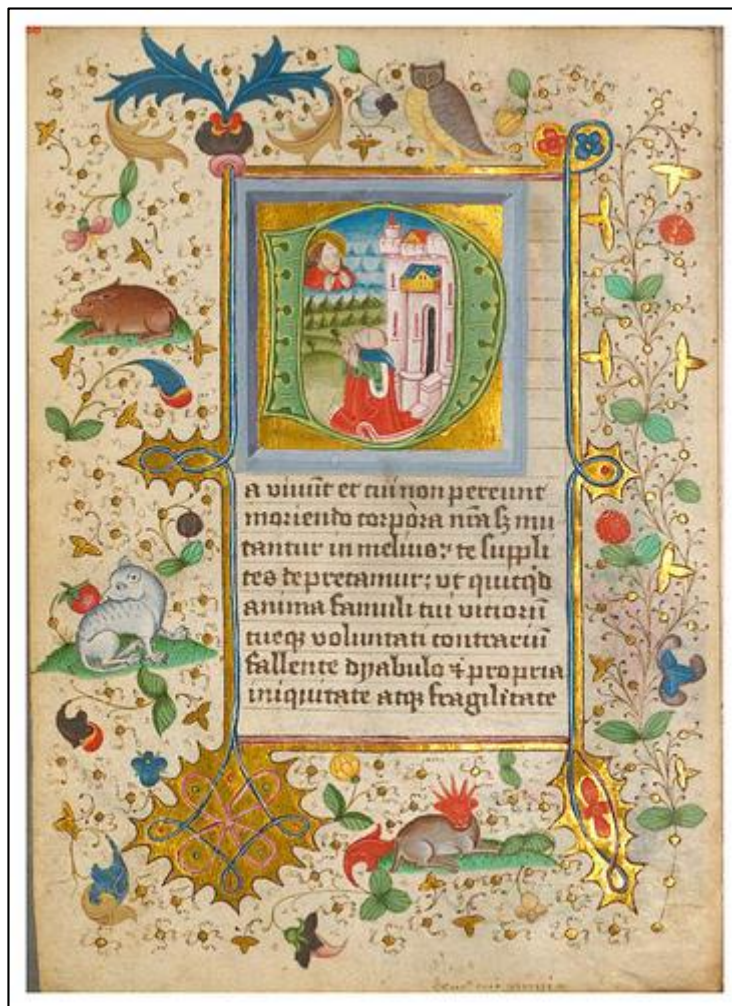 D
a viuūt et cui non pereunt
moriendo corpora nr̄a sꝫ mu
tantur in melius: te suppli
ces deprecamur: vt quicqͥd
anima famuli tui viciorū
tueqꝫ voluntati contrariū
fallente dyabulo ⁊ propria
iniquitate atqꝫ fragilitate